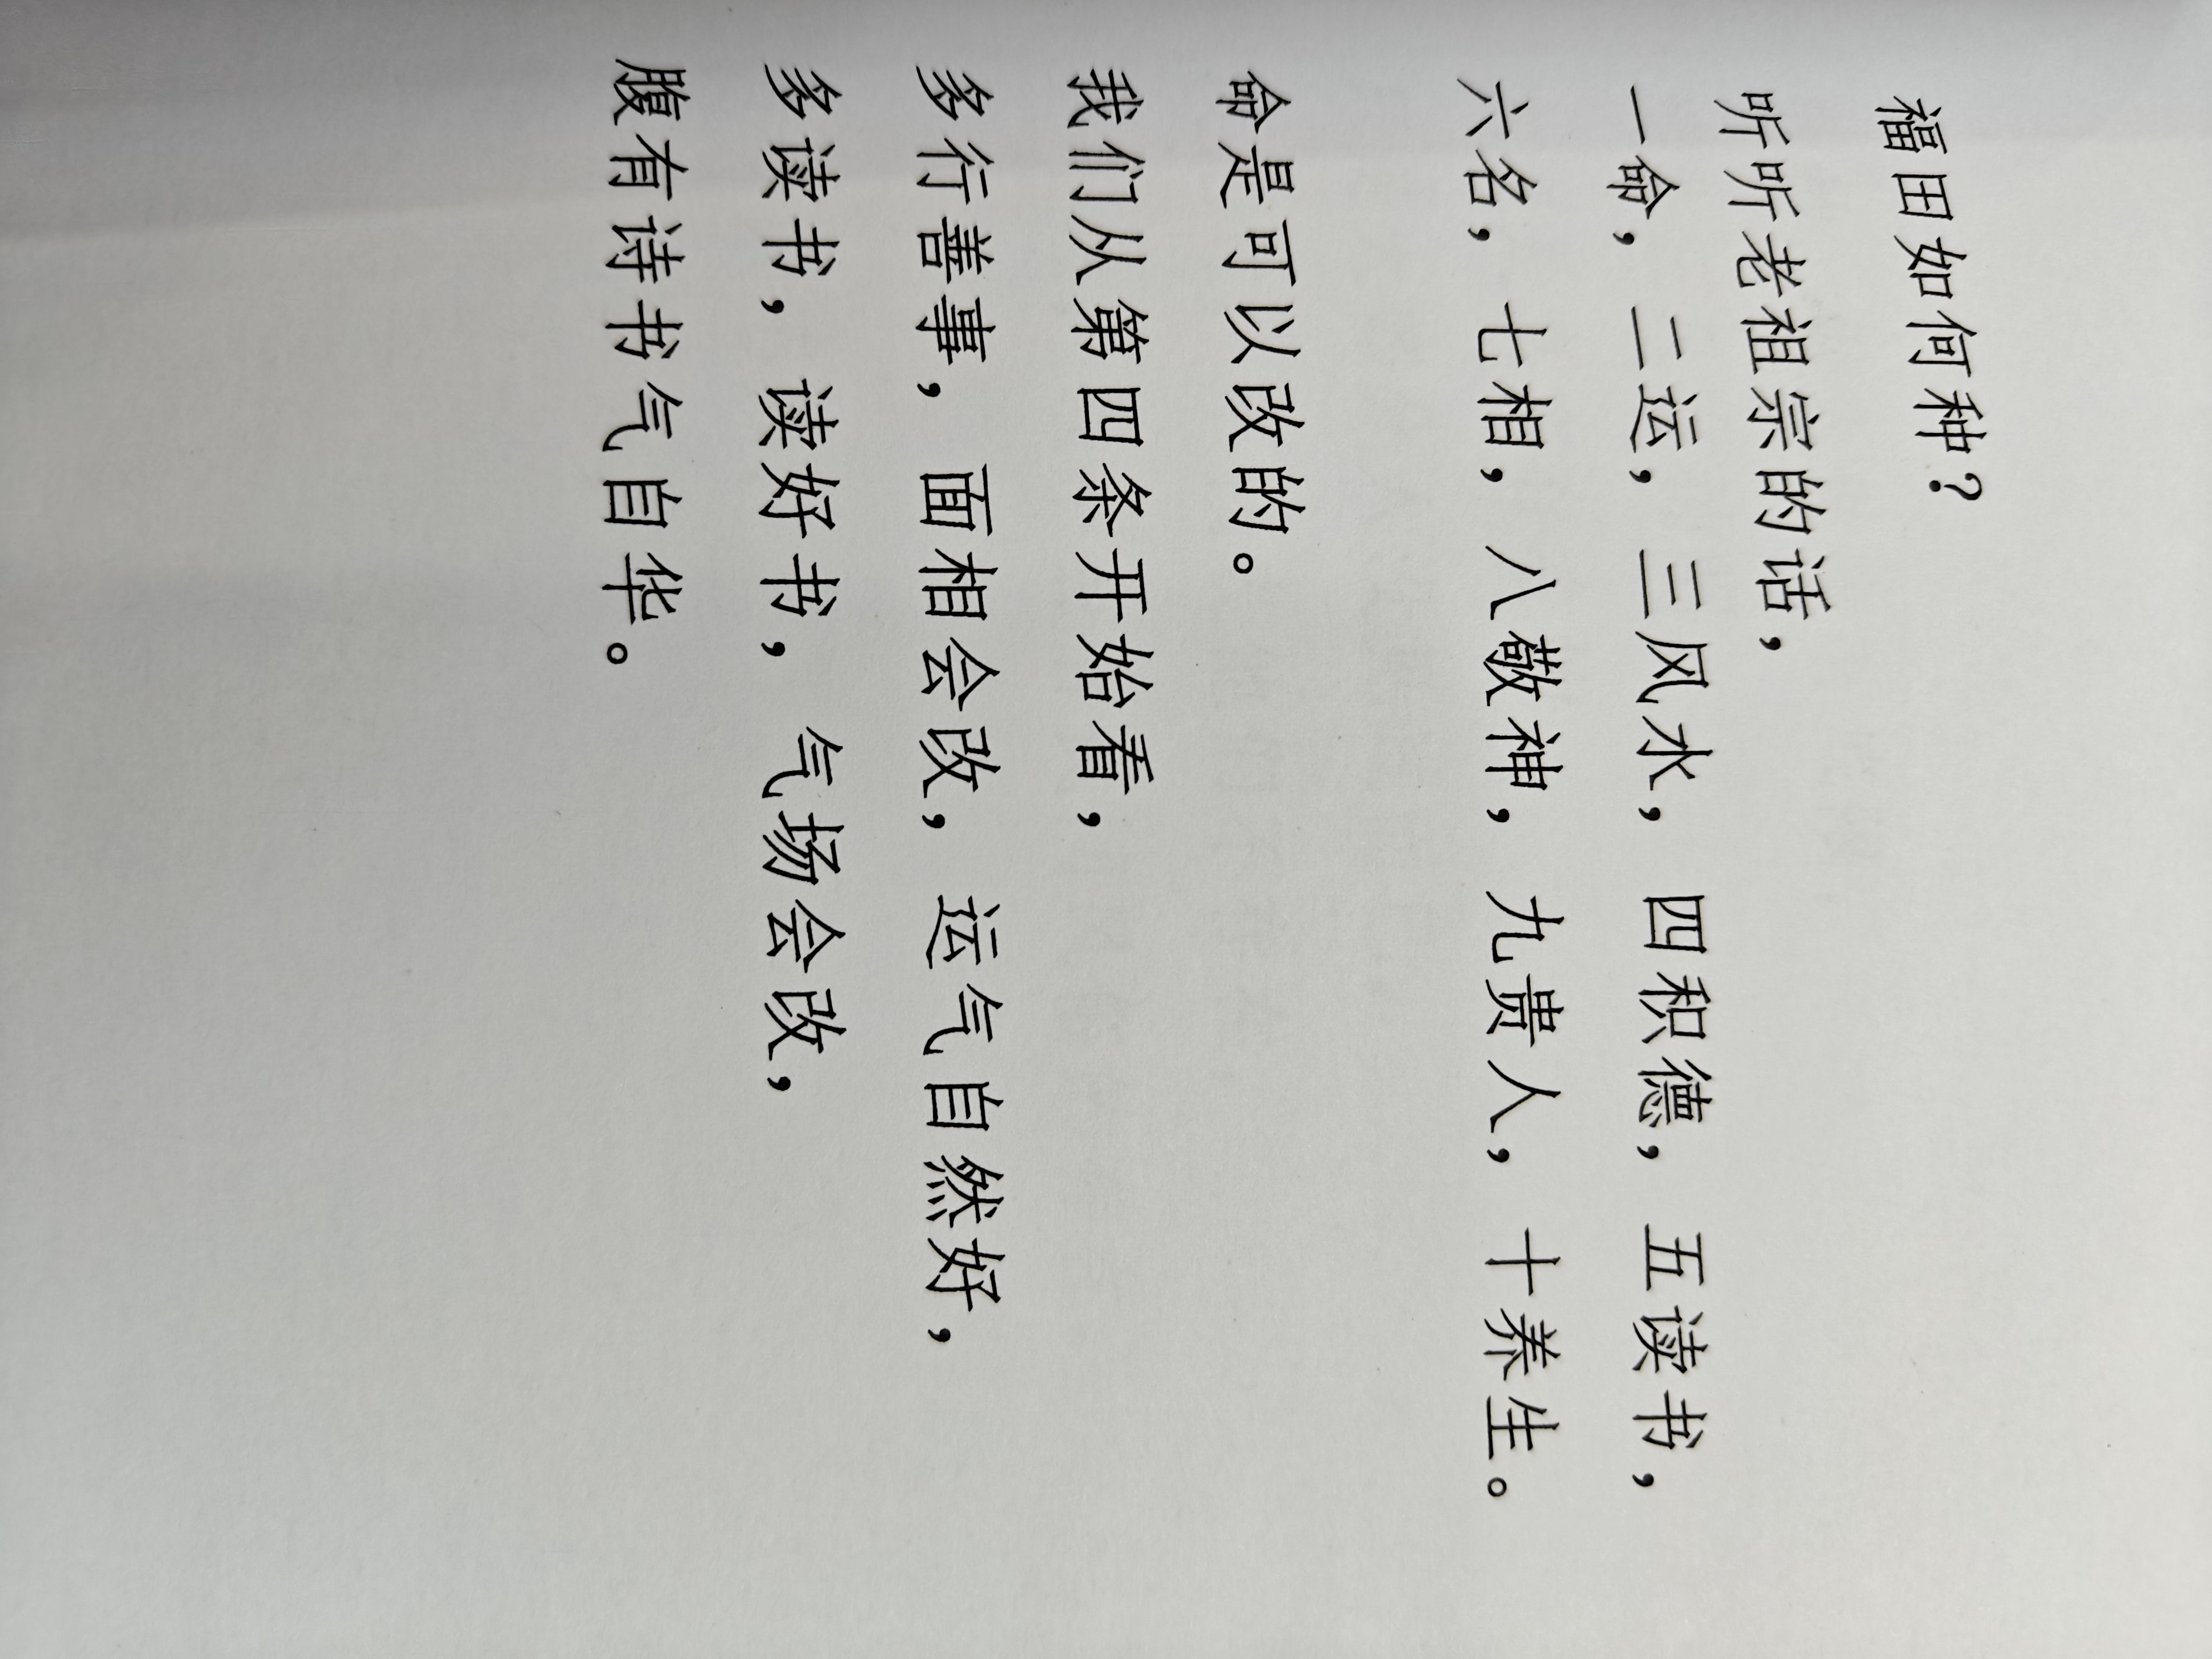 福田如何种？
听听老祖宗的话，
一命，二运，三风水，四积德，五读书，
六名，七相，八敬神，九贵人，十养生。
命是可以改的。
我们从第四条开始看，
多行善事，面相会改，运气自然好，
多读书，读好书，气场会改，
腹有诗书气自华。